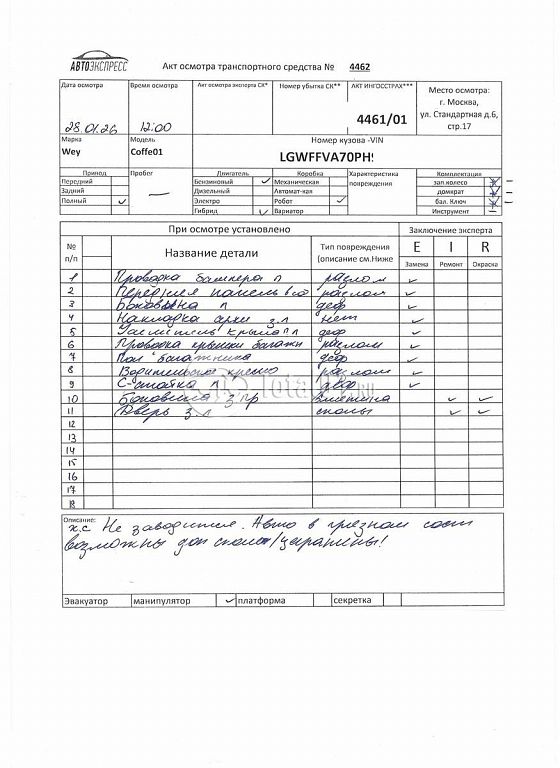 АВТОЭКСПРЕСС
Акт осмотра транспортного средства № 4462
Дата осмотра
Время осмотра
Акт осмотра эксперта СК*
Номер убытка СК**
АКТ ИНГОССТРАХ***
Место осмотра:
г. Москва,
ул. Стандартная д.6,
стр.17
28.01.26
12:00
4461/01
Марка
Модель
Номер кузова -VIN
Wey
Coffe01
LGWFFVA70PH
Привод
Пробег
Двигатель
Коробка
Характеристика повреждения
Комплектация
Передний
Бензиновый ✓
Механическая
зап.колесо
Задний
Дизельный
Автомат-кая
домкрат
Полный ✓
—
Электро
Робот ✓
бал. Ключ
Гибрид ✓
Вариатор
Инструмент —
При осмотре установлено
Заключение эксперта
№ п/п
Название детали
Тип повреждения (описание см.Ниже
E I R
Замена Ремонт Окраска
1 Проводка бампера п разлом ✓
2 Передняя панель разлом ✓
3 Боковина п деф ✓
4 Накладка арки з.л нет ✓
5 Усилитель крыла п деф ✓
6 Проводка крышки багажн разлом ✓
7 Пол багажника деф ✓
8 Водительское кресло разлом ✓
9 С-стойка л деф ✓
10 Боковина з пр вмятина ✓ ✓
11 Дверь з.л сколы ✓ ✓
12
13
14
15
16
17
18
Описание:
Не заводится. Авто в грязном сост
возможны доп сколы/царапины!
Эвакуатор манипулятор ✓ платформа секретка
Total